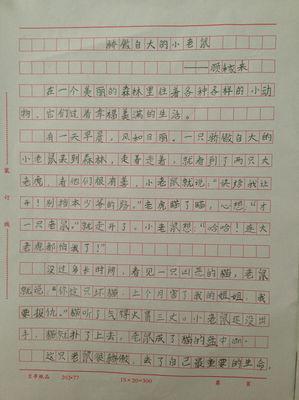 骄傲自大的小老鼠
在一个美丽的森林里住着各种各样的小动
物，它们过着幸福美满的生活。
有一天早晨，风和日丽。一只骄傲自大的
小老鼠来到森林，走着走着，就看到了两只大
老虎，看他们很有善，小老鼠就说：“快给我让
开！别挡本少爷的路。”老虎瞄了瞄，心想：“才
一只老鼠。”就走开了。小老鼠想：“哈哈！连大
老虎都怕我了！”
没过多长时间，看见一只凶恶的猫，老鼠
就说：“你这只坏猫，上个月害了我的姐姐，我
要报仇。”猫听了气得火冒三丈。小老鼠还没出
手，猫就扑了上去，老鼠成了猫的盘中
这只老鼠很骄傲，丢了自己最重要的生命。
装
订
线
15×20=300
第 页